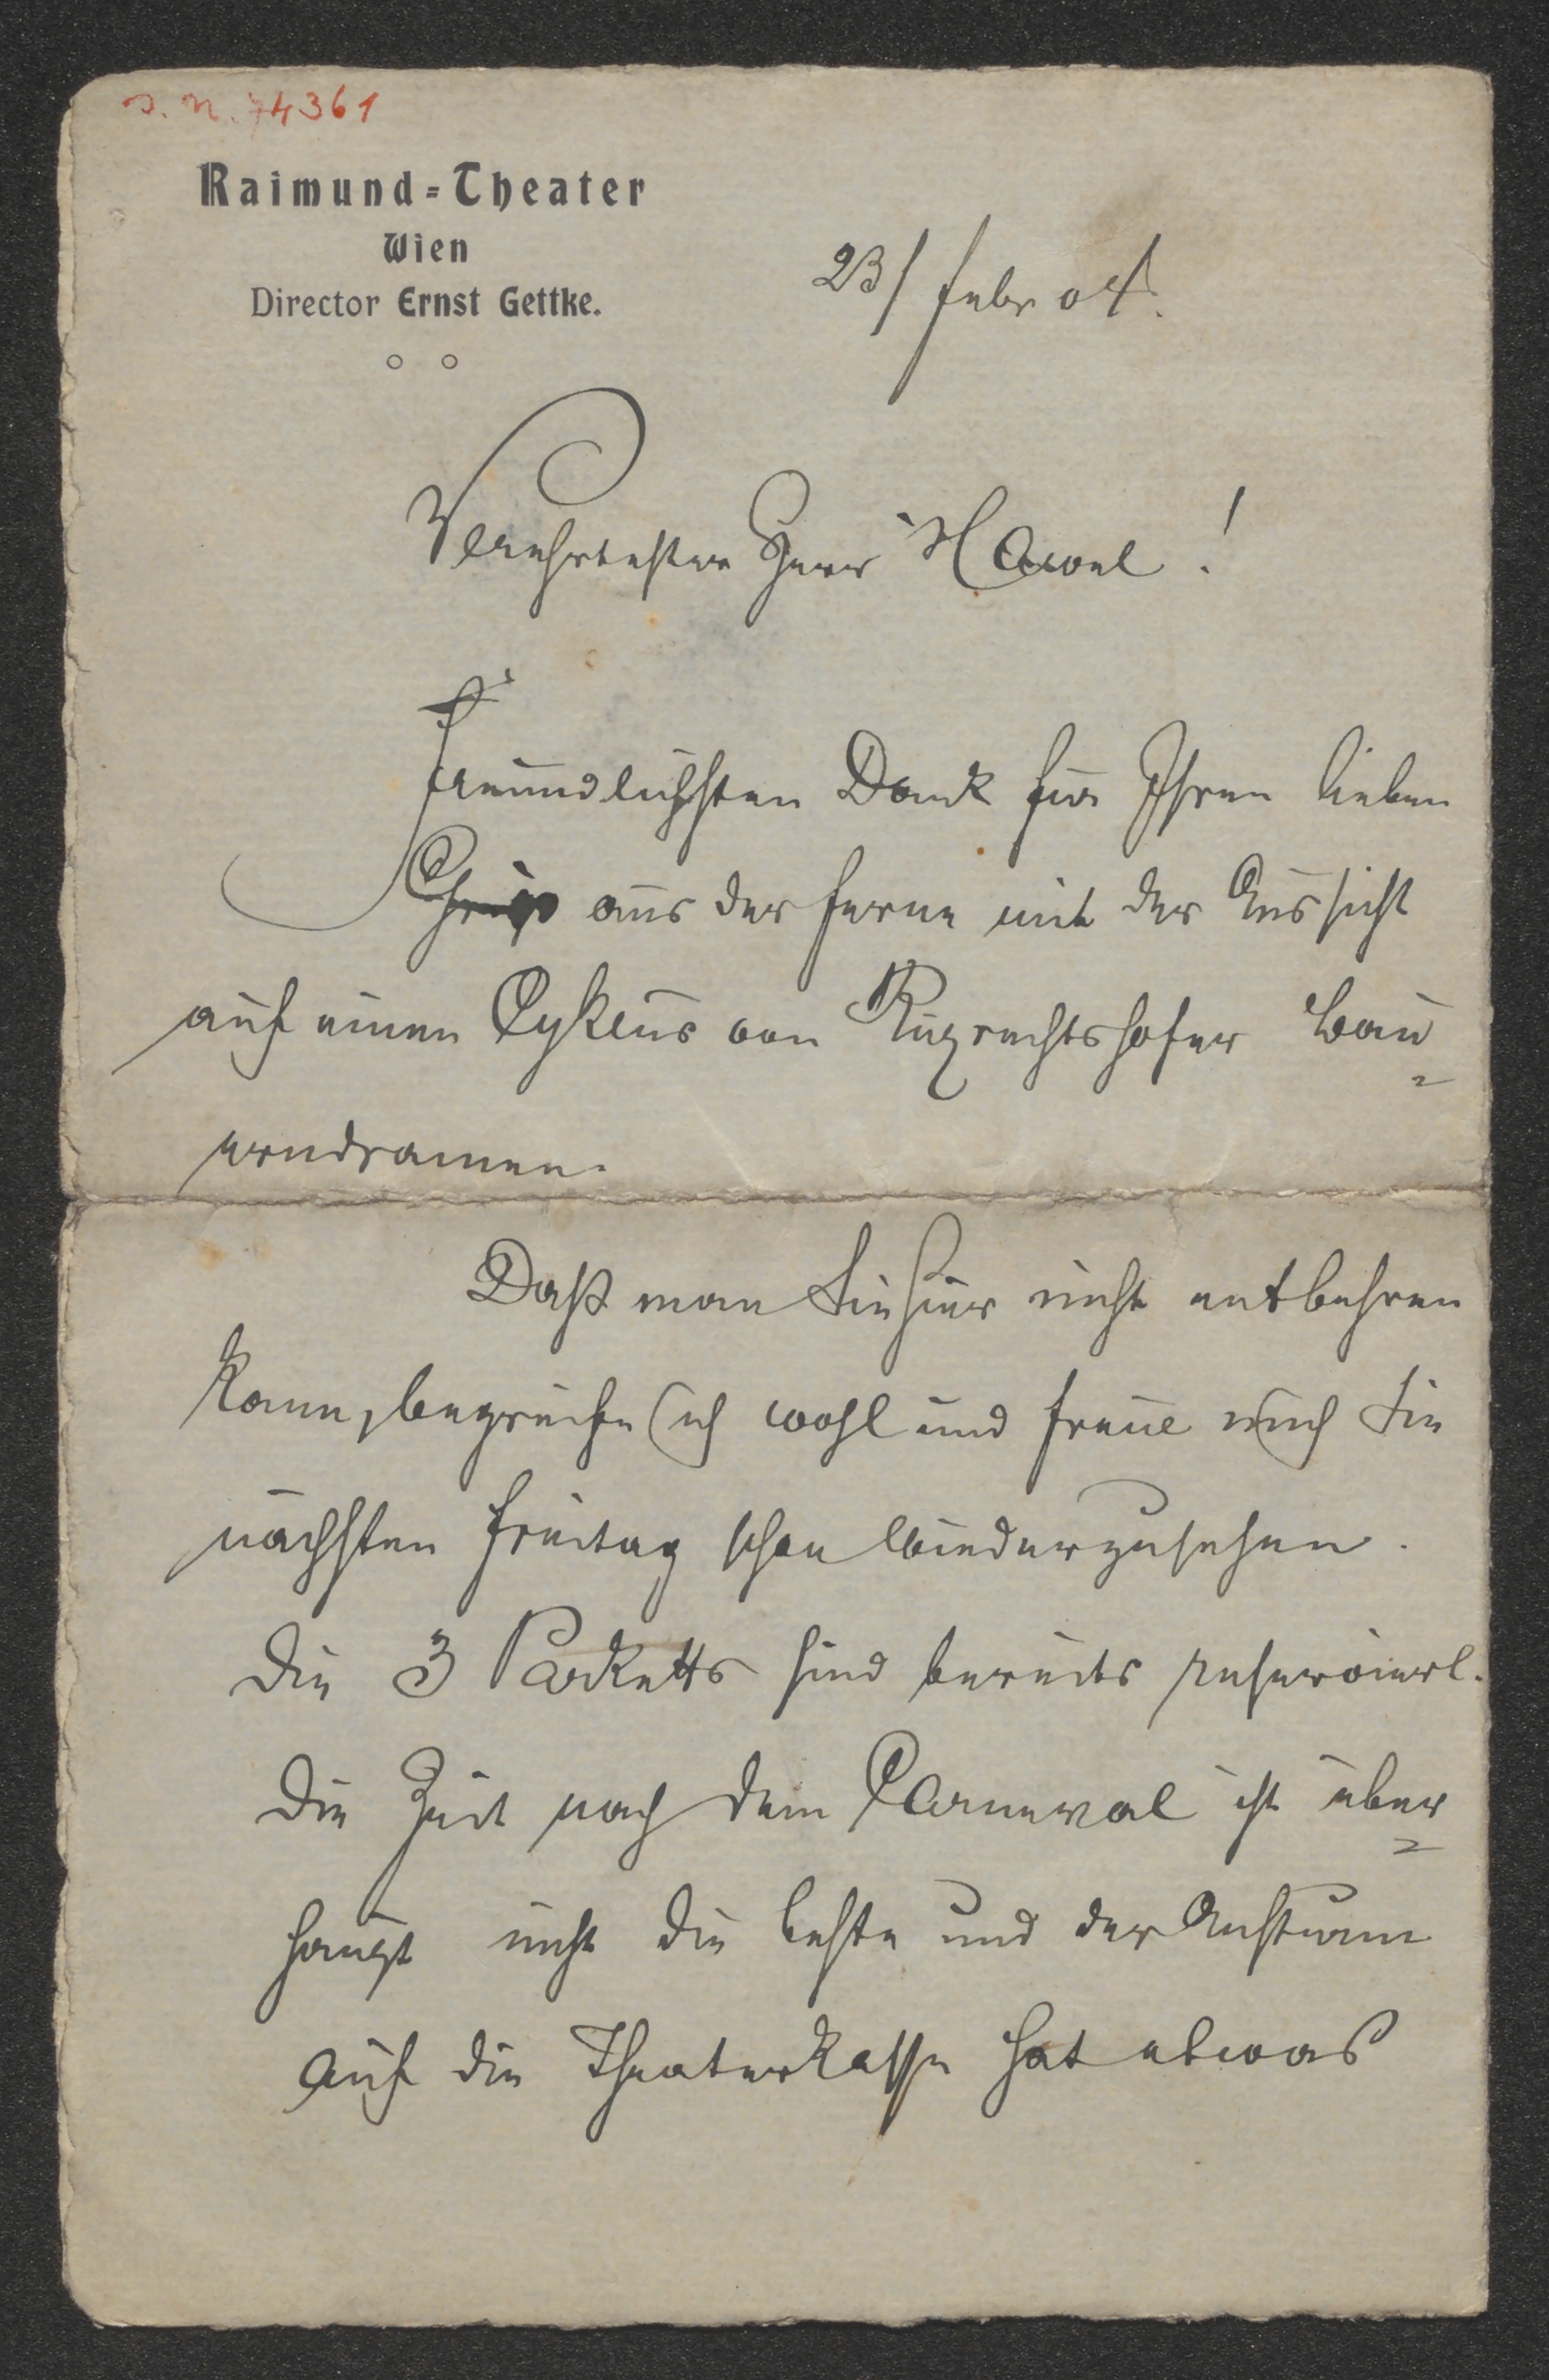 J. N. 74361
Raimund-Theater
Wien
Director Ernst Gettke.
23/ Febr 04.
Verehrtester Herr Hawel!
Freundlichsten Dank für Ihren lieben
Gruß aus der Ferne mit der Aussicht
auf einen Cyklus von Ruprechtshofer Bau=
erndramen.
Daß man Sie hier nicht entbehren
kann, begreife ich wohl und freue mich Sie
nächsten Freitag schon wiederzusehen.
Die 3 Parketts sind bereits reserviert.
Die Zeit nach dem Carneval ist über=
haupt nicht die beste und der Ansturm
auf die Theaterkasse hat etwas